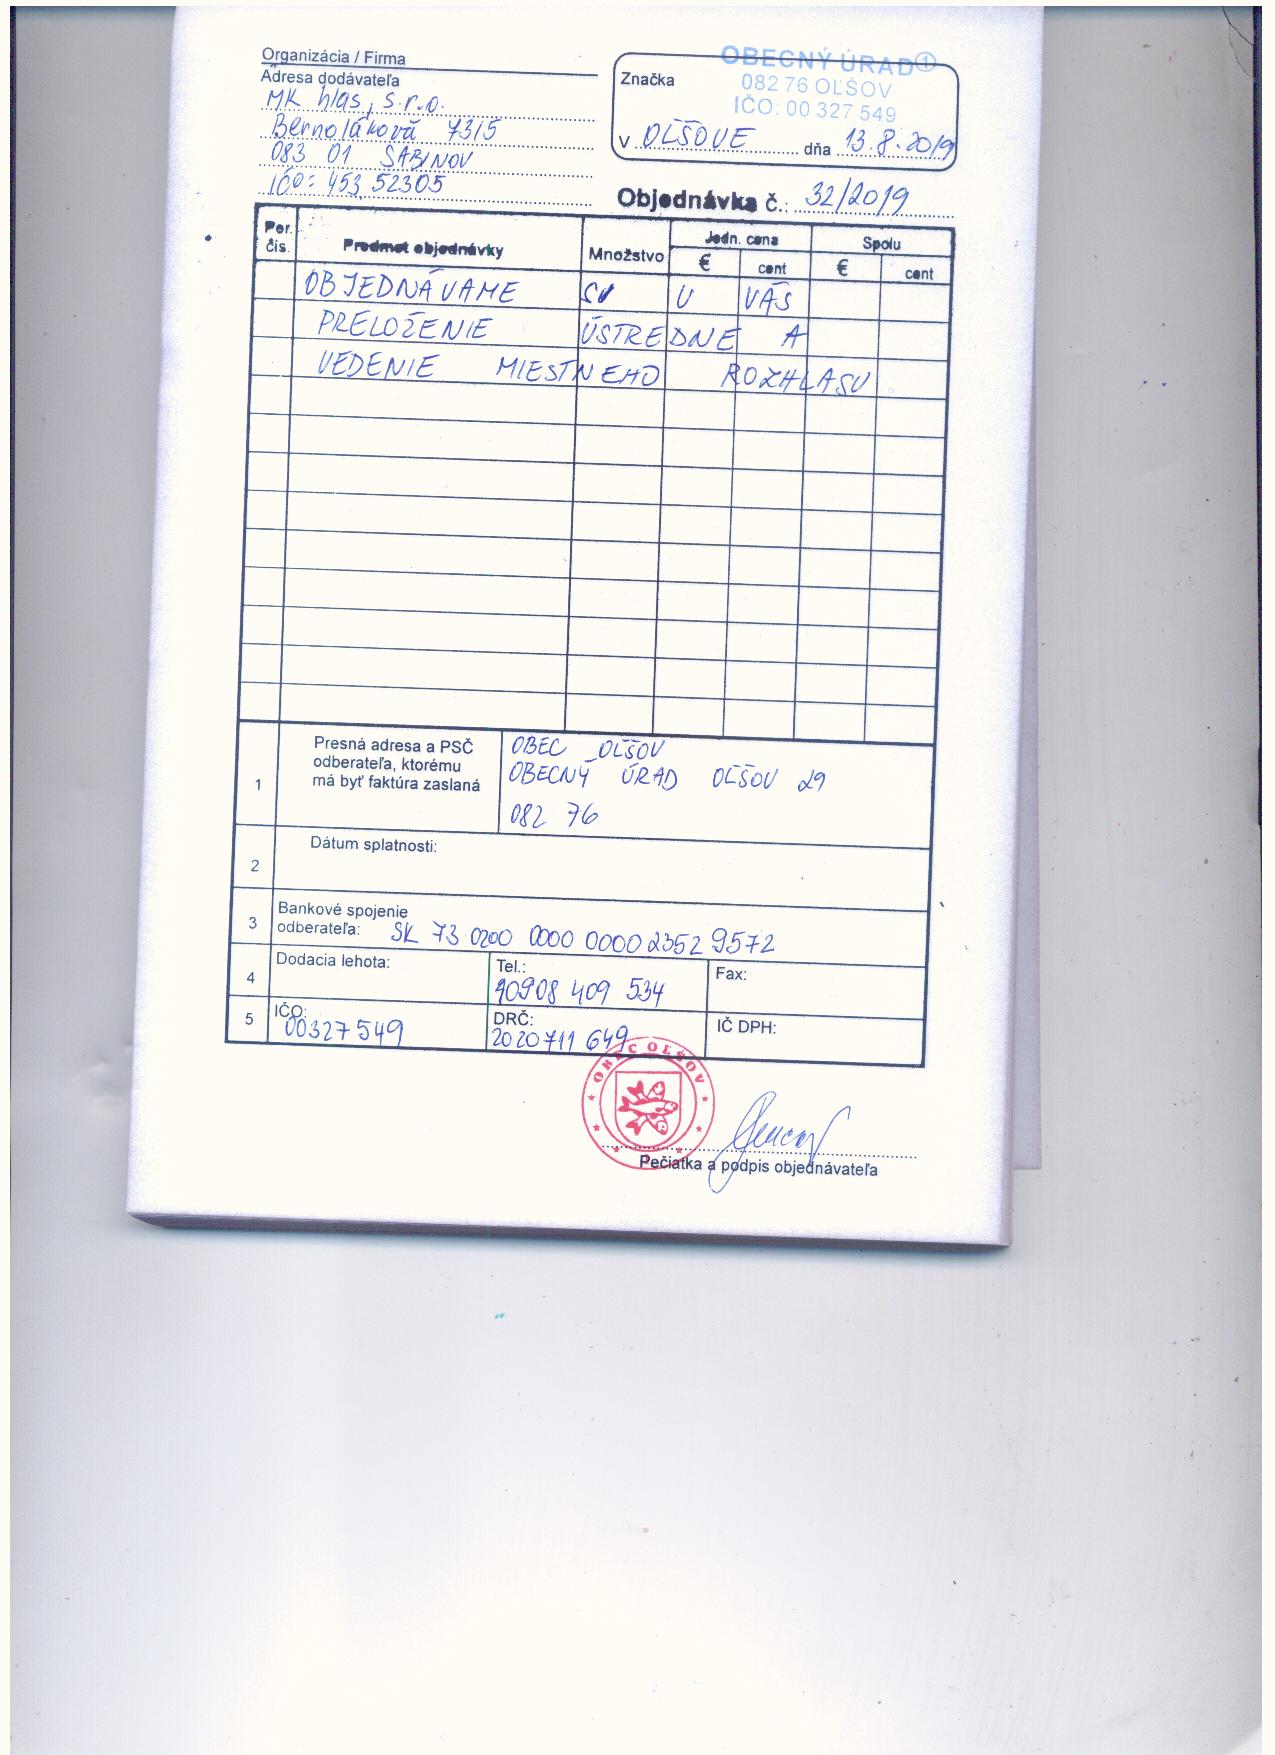 Organizácia / Firma
Adresa dodávateľa
MK hlas, s.r.o.
Bernolákova 7315
083 01 SABINOV
IČO: 453 52305
OBECNÝ ÚRAD 1
082 76 OĽŠOV
IČO: 00 327 549
Značka
v OĽŠOVE dňa 13.8.2019
Objednávka č.: 32/2019
Por. čís. Predmet objednávky Množstvo Jedn. cena Spolu
€ cent € cent
OBJEDNÁVAME SI U VÁS
PRELOŽENIE ÚSTREDNE A
VEDENIE MIESTNEHO ROZHLASU
1 Presná adresa a PSČ
odberateľa, ktorému
má byť faktúra zaslaná
OBEC OĽŠOV
OBECNÝ ÚRAD OĽŠOV 29
082 76
2 Dátum splatnosti:
3 Bankové spojenie
odberateľa: SK 73 0200 0000 0000 2352 9572
4 Dodacia lehota: Tel.: Fax:
0908 409 534
5 IČO: DRČ: IČ DPH:
00327549 2020711 649
OBEC OĽŠOV
Pečiatka a podpis objednávateľa